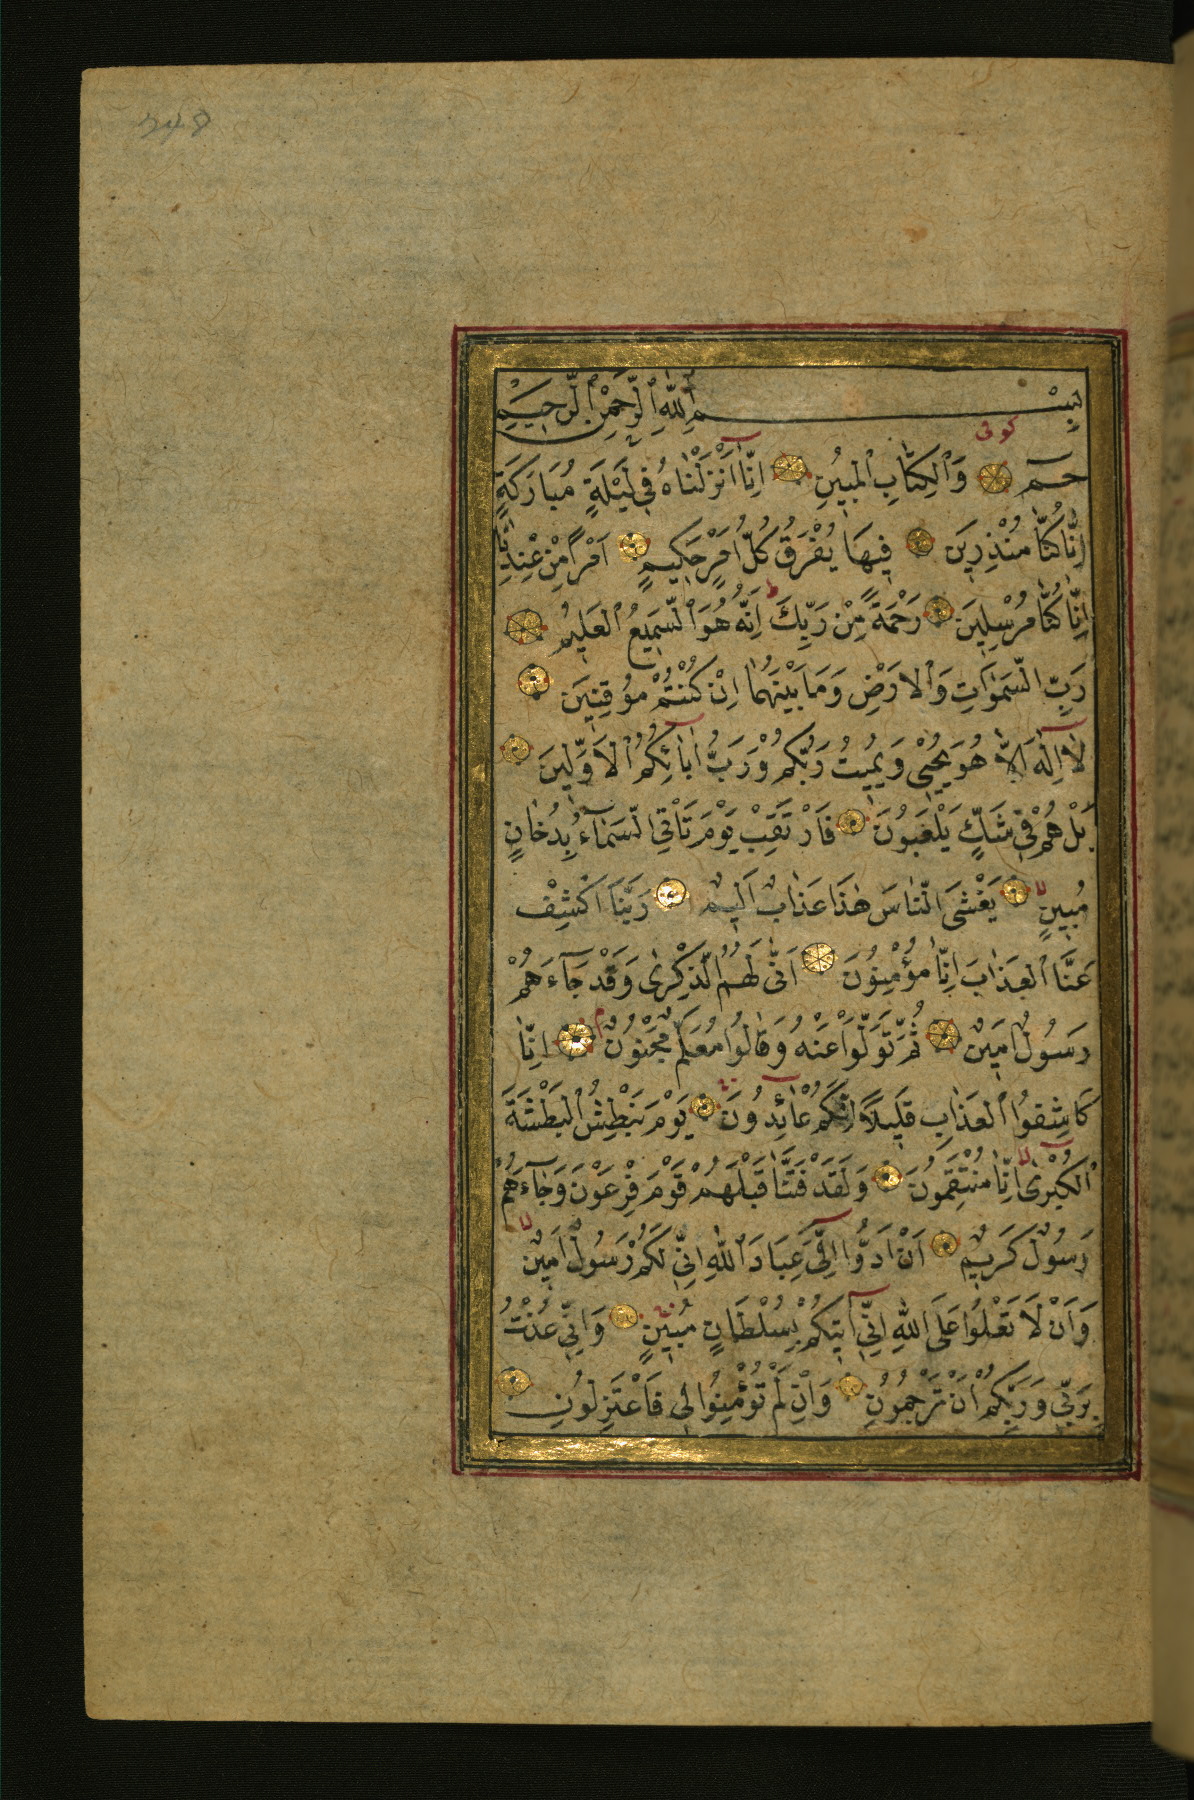 بِسْمِ ٱللّٰهِ ٱلرَّحْمٰنِ ٱلرَّحِيمِ
كوفى
حٰمٓ وَٱلْكِتَابِ ٱلْمُبِينِ اِنَّآ اَنْزَلْنَاهُ فِى لَيْلَةٍ مُبَارَكَةٍ
اِنَّا كُنَّا مُنْذِرِينَ فِيهَا يُفْرَقُ كُلُّ اَمْرٍ حَكِيمٍ اَمْرًا مِنْ عِنْدِنَا
اِنَّا كُنَّا مُرْسِلِينَ رَحْمَةً مِنْ رَبِّكَ ط اِنَّهُ هُوَ ٱلسَّمِيعُ ٱلْعَلِيمُ
رَبِّ ٱلسَّمٰوَاتِ وَٱلْاَرْضِ وَمَا بَيْنَهُمَا اِنْ كُنْتُمْ مُوقِنِينَ
لَآ اِلٰهَ اِلَّا هُوَ يُحْيِى وَيُمِيتُ رَبُّكُمْ وَرَبُّ اٰبَآئِكُمُ ٱلْاَوَّلِينَ
بَلْ هُمْ فِى شَكٍّ يَلْعَبُونَ فَارْتَقِبْ يَوْمَ تَاْتِى ٱلسَّمَآءُ بِدُخَانٍ
مُبِينٍ لا يَغْشَى ٱلنَّاسَ هٰذَا عَذَابٌ اَلِيمٌ رَبَّنَا ٱكْشِفْ
عَنَّا ٱلْعَذَابَ اِنَّا مُؤْمِنُونَ اَنّٰى لَهُمُ ٱلذِّكْرٰى وَقَدْ جَآءَهُمْ
رَسُولٌ مُبِينٌ ثُمَّ تَوَلَّوْا عَنْهُ وَقَالُوا مُعَلَّمٌ مَجْنُونٌ م اِنَّا
كَاشِفُوا ٱلْعَذَابِ قَلِيلًا اِنَّكُمْ عَآئِدُونَ يَوْمَ نَبْطِشُ ٱلْبَطْشَةَ
ٱلْكُبْرٰى لا اِنَّا مُنْتَقِمُونَ وَلَقَدْ فَتَنَّا قَبْلَهُمْ قَوْمَ فِرْعَوْنَ وَجَآءَهُمْ
رَسُولٌ كَرِيمٌ اَنْ اَدُّوٓا اِلَىَّ عِبَادَ ٱللّٰهِ اِنِّى لَكُمْ رَسُولٌ اَمِينٌ لا
وَاَنْ لَا تَعْلُوا عَلَى ٱللّٰهِ اِنِّىٓ اٰتِيكُمْ بِسُلْطَانٍ مُبِينٍ وَاِنِّى عُذْتُ
بِرَبِّى وَرَبِّكُمْ اَنْ تَرْجُمُونِ وَاِنْ لَمْ تُؤْمِنُوا لِى فَاعْتَزِلُونِ